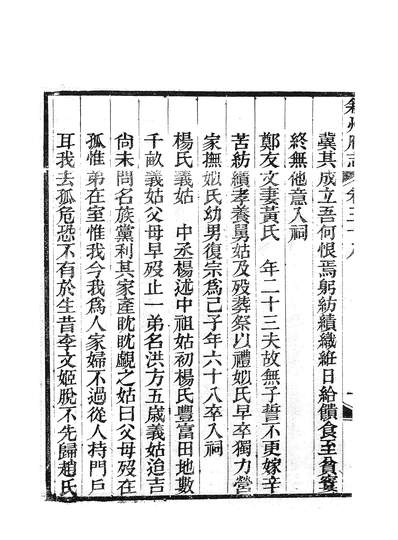 冀其成立吾何恨焉躬紡績織紝日給饋食至貧窶
終無他意入祠
鄭友文妻黃氏　年二十三夫故無子誓不更嫁辛
苦紡績孝養舅姑及歿葬祭以禮姒氏早卒獨力營
家撫姒氏幼男復宗爲己子年六十八卒入祠
楊氏義姑　中丞楊述中祖姑初楊氏豐富田地數
千畝義姑父母早歿止一弟名洪方五歲義姑迨吉
尙未問名族黨利其家產眈眈覷之姑曰父母歿在
孤惟弟在室惟我今我爲人家婦不過從人持門戶
耳我去孤危恐不有於生昔李文姬脫不先歸趙氏